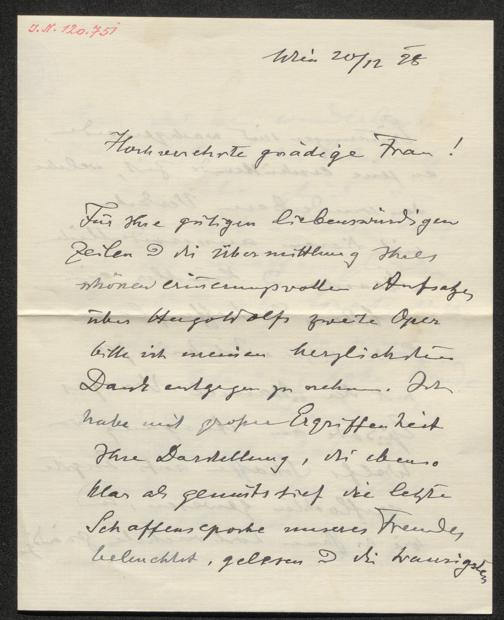 J.N. 120.751
Wien 20/12 28
Hochverehrte gnädige Frau!
Für Ihre gütigen liebenswürdigen
Zeilen & die Übermittlung Ihres
schönen erinnerungsvollen Aufsatzes
über Hugo Wolfs zweite Oper
bitte ich meinen herzlichsten
Dank entgegen zu nehmen. Ich
habe mit großer Ergriffenheit
Ihre Darstellung, die ebenso
klar als gemütstief die letzte
Schaffensepoche unseres Freundes
beleuchtet, gelesen & die traurigsten